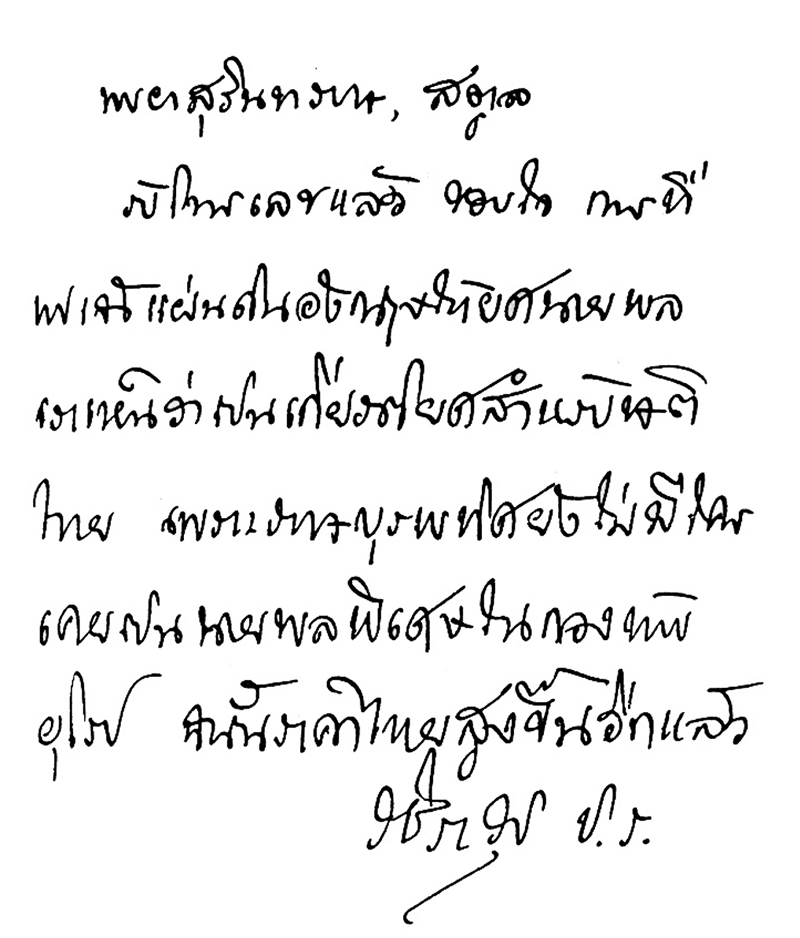 พยาสุรินทราชา, สตูล
รับโทรเลขแล้ว ขอบใจ การที่
พเจ้าแผ่นดินอังกฤษให้ยศนายพล
เราเห็นว่าเปนเกียรติยศสำหรับชาติ
ไทย เพราะทางบุรพทิศยังไม่มีใคร
เคยเปนนายพลพิเศษในกองทัพ
ยุโรป ฉนั้นราคาไทยสูงขึ้นอีกแล้ว
วชิราวุธ ป.ร.